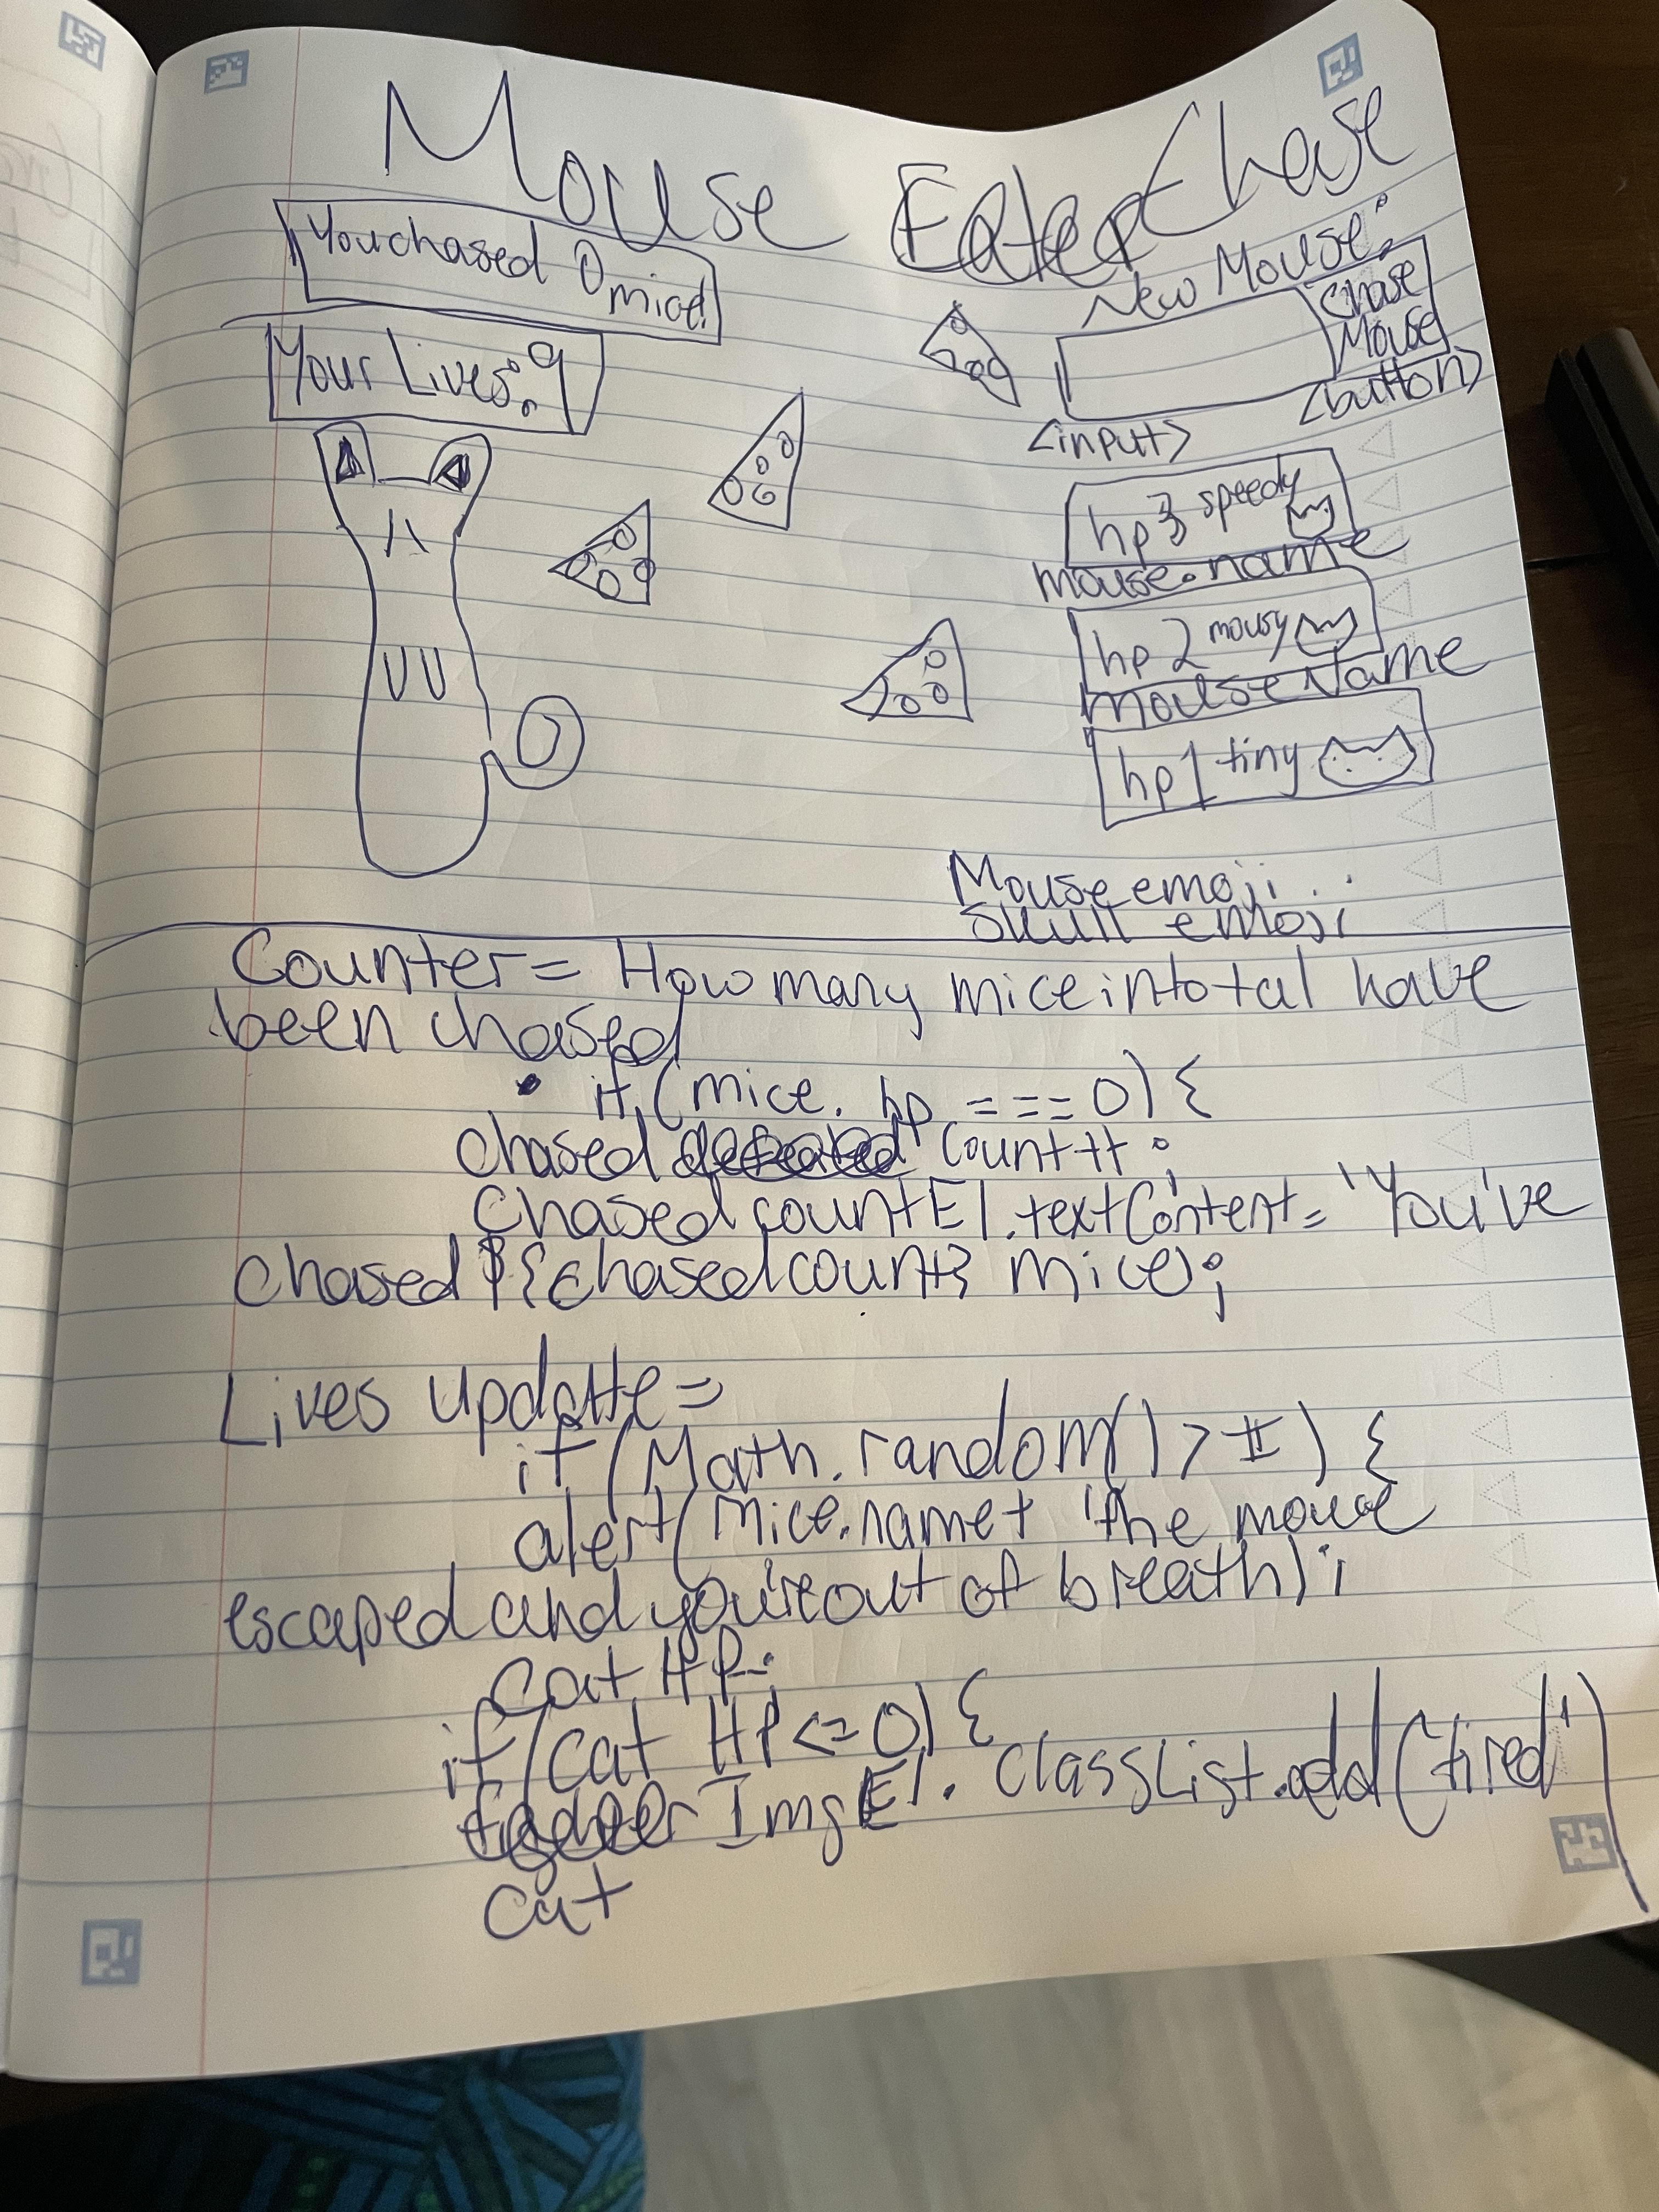 Mouse Eater Chase
You chased 0 mice!
Your Lives: 9
New Mouse:
Chase
Mouse
<button>
<input>
hp 3 speedy
mouse.name
hp 2 mousy
mouse Name
hp 1 tiny
Mouse emoji
Skull emoji
Counter = How many mice in total have
been chased
• if (mice. hp === 0) {
chased defeated count++;
Chased countEl.textContent = 'You've
chased ${chasedcount} mice);
Lives update =
if (Math.random() > ) {
alert(mice.name + 'the mouse
escaped and you're out of breath);
Cat HP-;
if (cat HP <= 0) {
ImgEl. classList.add('tired')
Cat